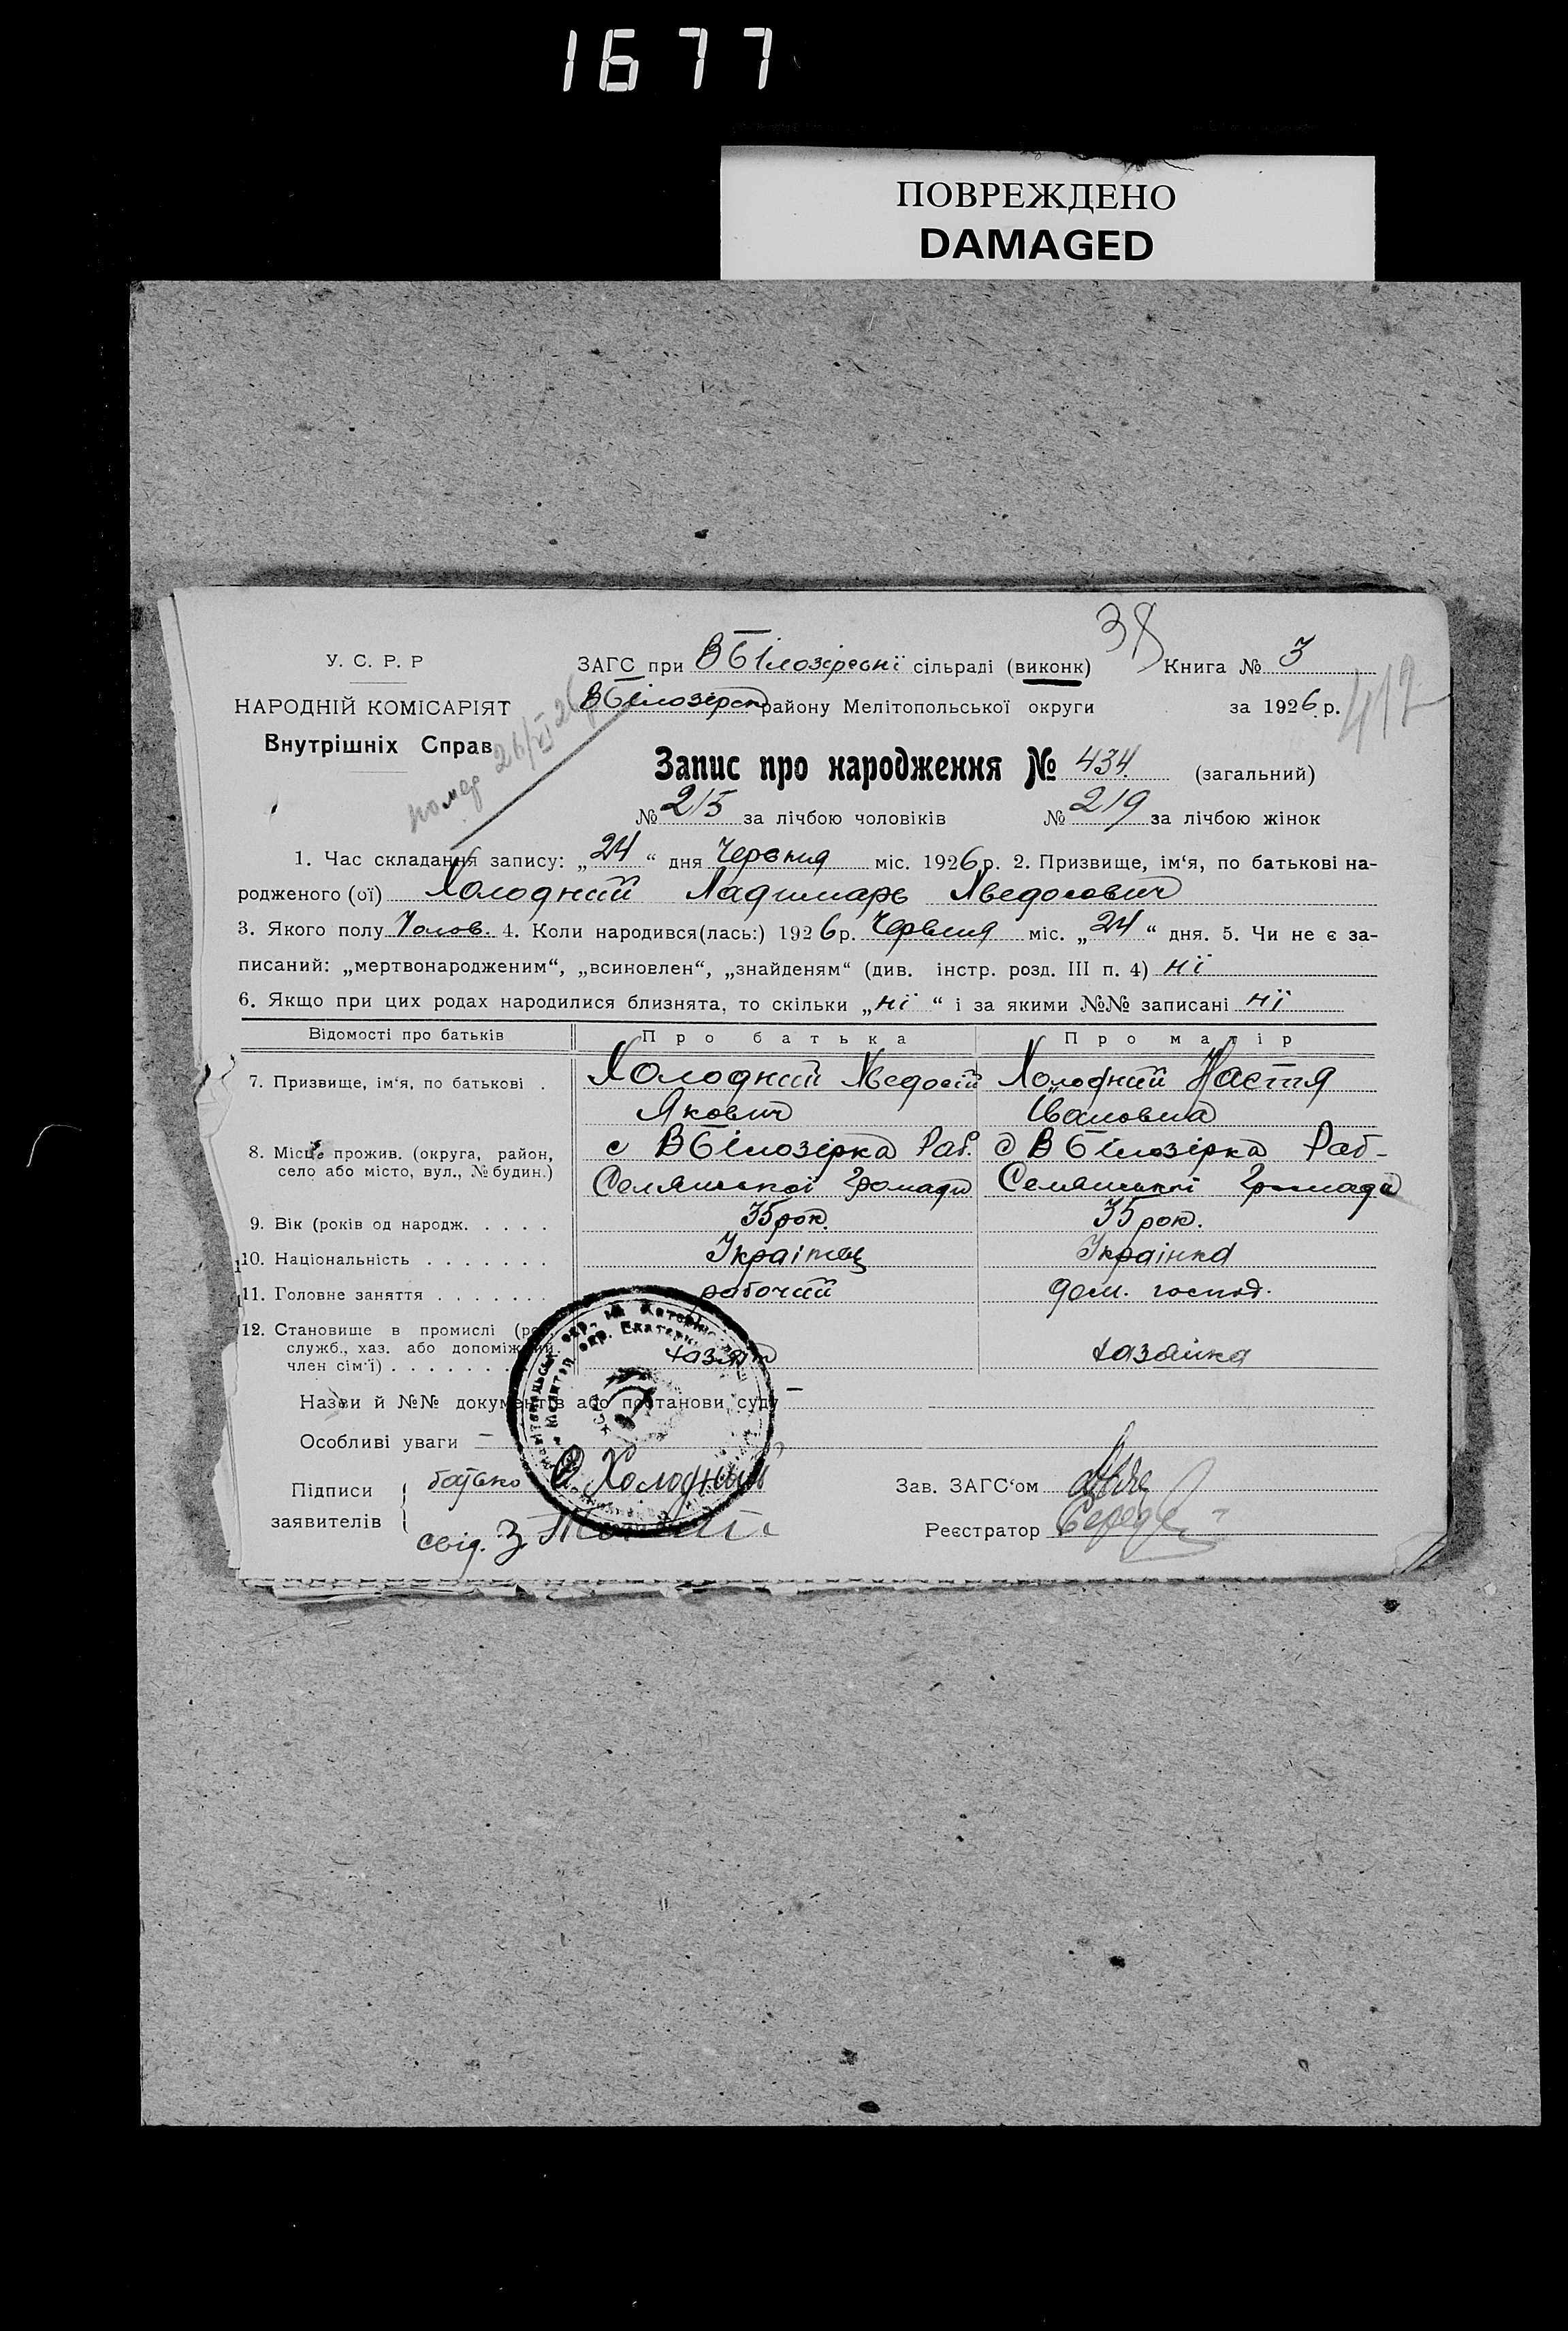 1677
ПОВРЕЖДЕНО
DAMAGED
38
У. С. Р. Р
ЗАГС при ВБілозірські сільраді (виконк) Книга № 3
412
НАРОДНІЙ КОМІСАРІЯТ
ВБілозірск району Мелітопольської округи за 1926 р.
Внутрішніх Справ
помер 26/VI 26
Запис про народження № 434. (загальний)
№ 215 за лічбою чоловіків № 219 за лічбою жінок
1. Час складання запису: „24“ дня Червня міс. 1926 р. 2. Призвище, ім‘я, по батькові на-
родженого (ої) Холодний Ладимарь Хведосович
3. Якого полу Чолов. 4. Коли народився(лась:) 1926 р. Червня міс. „24“ дня. 5. Чи не є за-
писаний: „мертвонародженим“, „всиновлен“, „знайденям“ (див. інстр. розд. III п. 4) нї
6. Якщо при цих родах народилися близнята, то скільки „нї“ і за якими №№ записані нї
Відомості про батьків Про батька Про матір
7. Призвище, ім‘я, по батькові . Холодний Хведосій Холодний Настя
Якович Івановна
8. Місце прожив. (округа, район, с ВБілозірка Раб. с ВБілозірка Раб-
село або місто, вул., № будин.) Селянської Громади Селянської Громади
9. Вік (років од народж. . . . . 35 рок. 35 рок.
10. Національність . . . . . . . Українец Українка
11. Головне заняття . . . . . . . робочий дом. господ.
12. Становище в промислі
служб., хаз. або допоміжний
член сім‘ї) . . . . . . . хазяїн хазяйка
Назви й №№ документів або постанови суду —
Особливі уваги —
Підписи батько Холодный Зав. ЗАГС‘ом
заявителів свід. З. Реєстратор